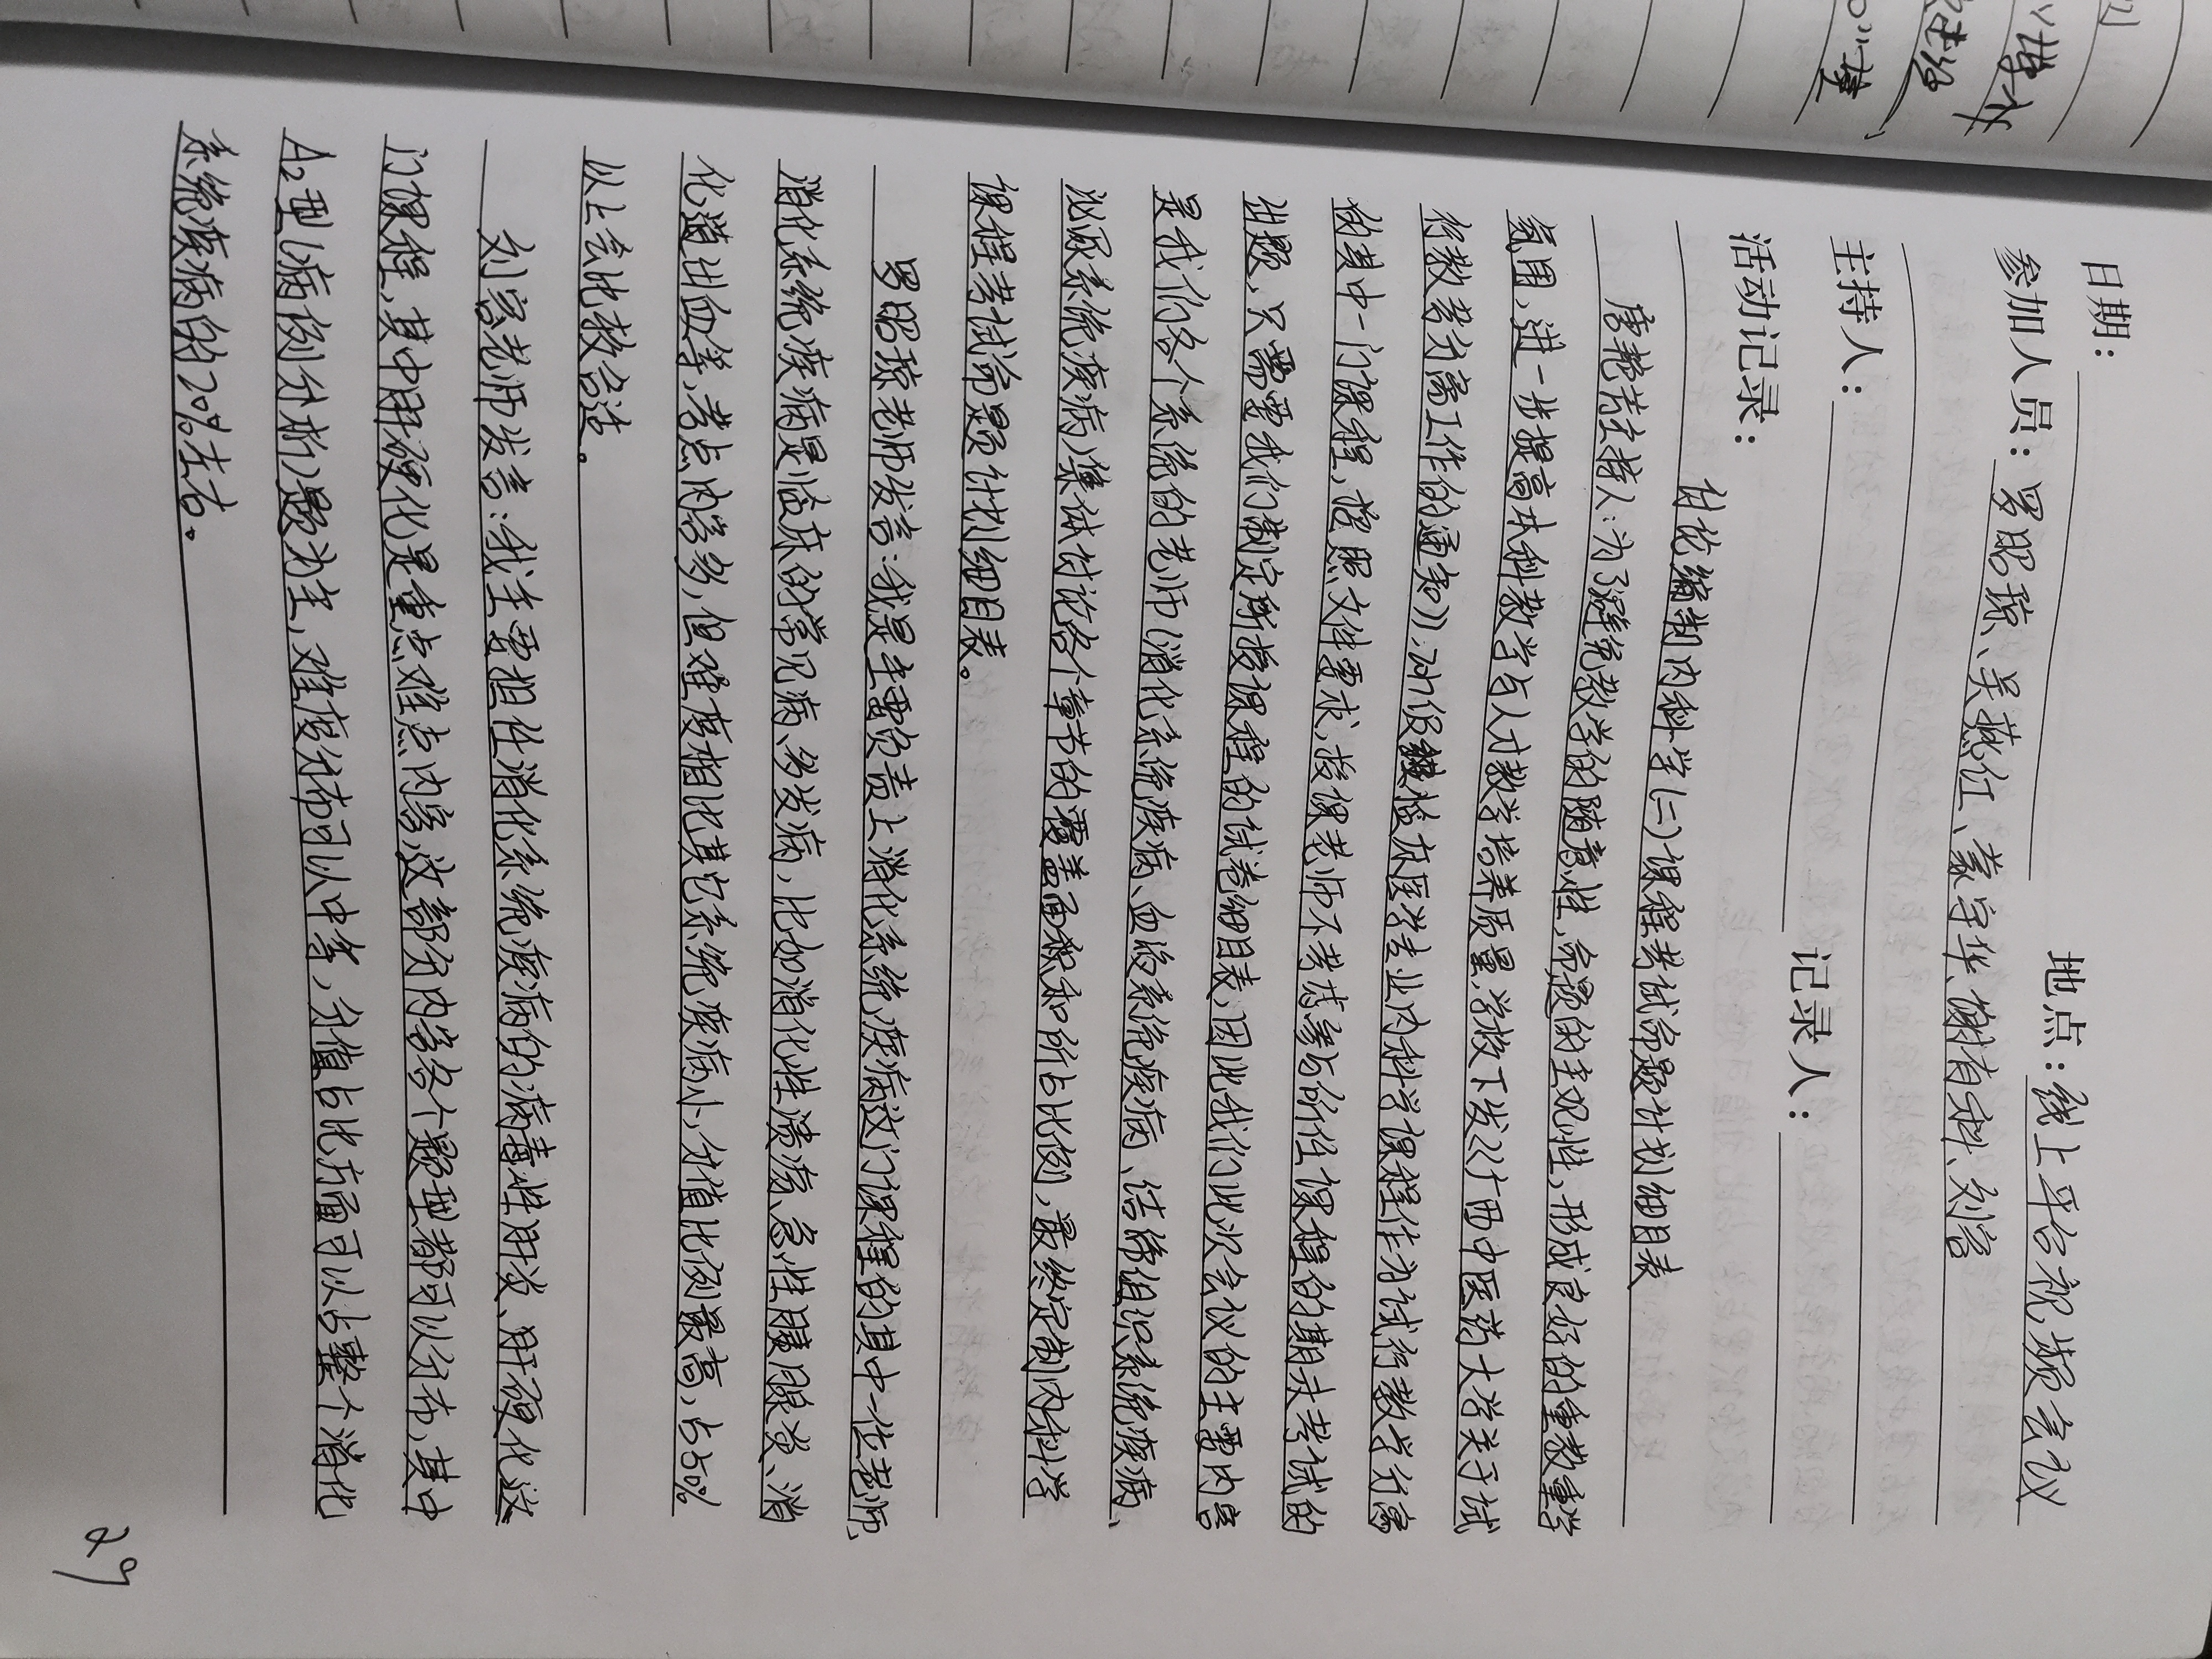 日期： 地点：线上平台视频会议
参加人员：罗昭琼、吴燕红、蒙宇华、谢有科、刘容
主持人： 记录人：
活动记录：
讨论编制内科学(二)课程考试命题计划细目表
唐艳芳主持人：为了避免教学的随意性,命题的主观性,形成良好的重教重学
氛围,进一步提高本科教学与人才教学培养质量,学校下发《广西中医药大学关于试
行教考分离工作的通知》:咱们临床医学专业内科学课程作为试行教学分离
的其中一门课程,按照文件要求,授课老师不考虑参与所任课程的期末考试的
出题,只需要我们制定所授课程的试卷细目表,因此我们此次会议的主要内容
是我们各个系统的老师(消化系统疾病、血液系统疾病、结缔组织系统疾病、
泌尿系统疾病)集体讨论各个章节的覆盖面积和所占比例,最终定制内科学
课程考试命题计划细目表。
罗昭琼老师发言:我是主要负责上消化系统疾病这门课程的其中一位老师,
消化系统疾病是临床的常见病、多发病,比如消化性溃疡、急性胰腺炎、消
化道出血等,考点内容多,但难度相比其它系统疾病小,分值比例最高,占50%
以上会比较合适。
刘容老师发言:我主要担任消化系统疾病的病毒性肝炎、肝硬化这
门课程,其中肝硬化是重点难点内容,这部分内容各个题型都可以分布,其中
A2型(病例分析)题为主,难度分布可以中等,分值占比方面可以占整个消化
系统疾病的20%左右。
29